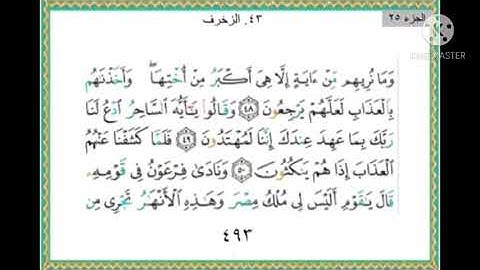 الجزء ٢٥
٤٣. الزخرف
وَمَا نُرِيهِم مِّنْ ءَايَةٍ إِلَّا هِىَ أَكْبَرُ مِنْ أُخْتِهَا ۖ وَأَخَذْنَٰهُم
بِالْعَذَابِ لَعَلَّهُمْ يَرْجِعُونَ ٤٨ وَقَالُوا۟ يَٰٓأَيُّهَ السَّاحِرُ ادْعُ لَنَا
رَبَّكَ بِمَا عَهِدَ عِندَكَ إِنَّنَا لَمُهْتَدُونَ ٤٩ فَلَمَّا كَشَفْنَا عَنْهُمُ
الْعَذَابَ إِذَا هُمْ يَنكُثُونَ ٥٠ وَنَادَىٰ فِرْعَوْنُ فِى قَوْمِهِۦ
قَالَ يَٰقَوْمِ أَلَيْسَ لِى مُلْكُ مِصْرَ وَهَٰذِهِ الْأَنْهَٰرُ تَجْرِى مِن
٤٩٣